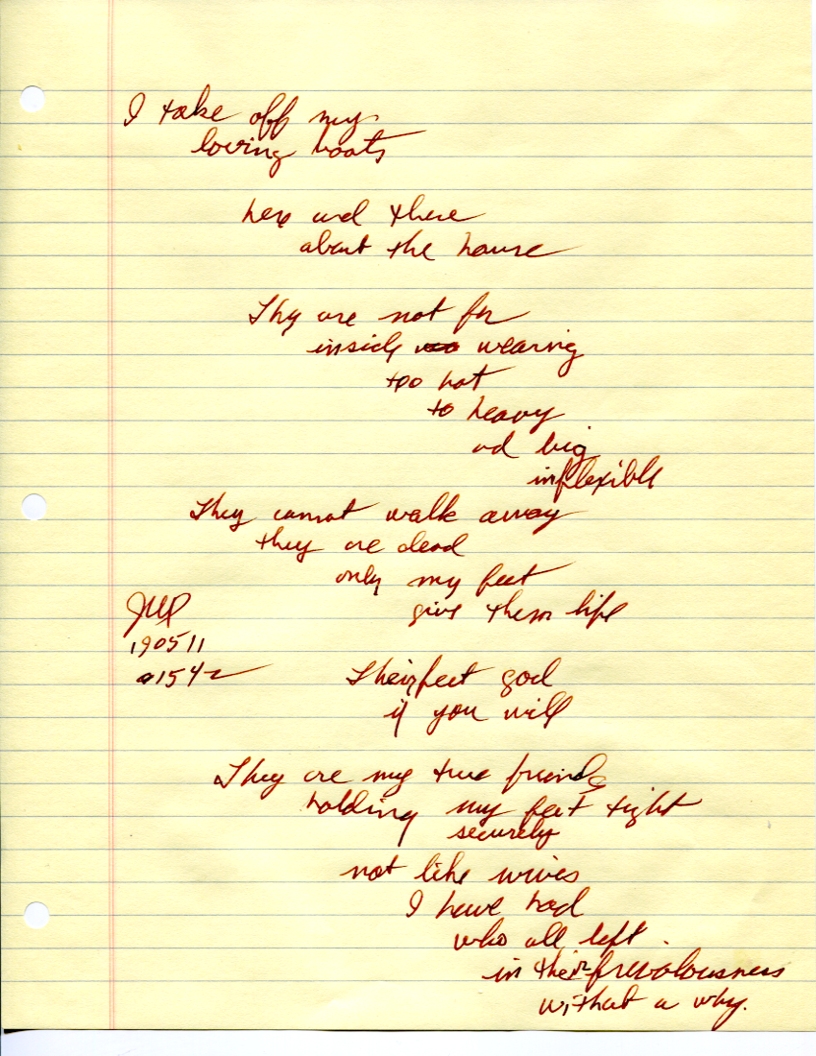 I take off my
loving boots
here and there
about the house
They are not for
inside wearing
too hot
to heavy
ad big
inflexible
They cannot walk away
they are dead
only my feet
give them life
JWP
190511
a1542
Their feet god
if you will
They are my true friends
holding my feet tight
securely
not like wives
I have had
who all left.
in their frevolousness
without a why.